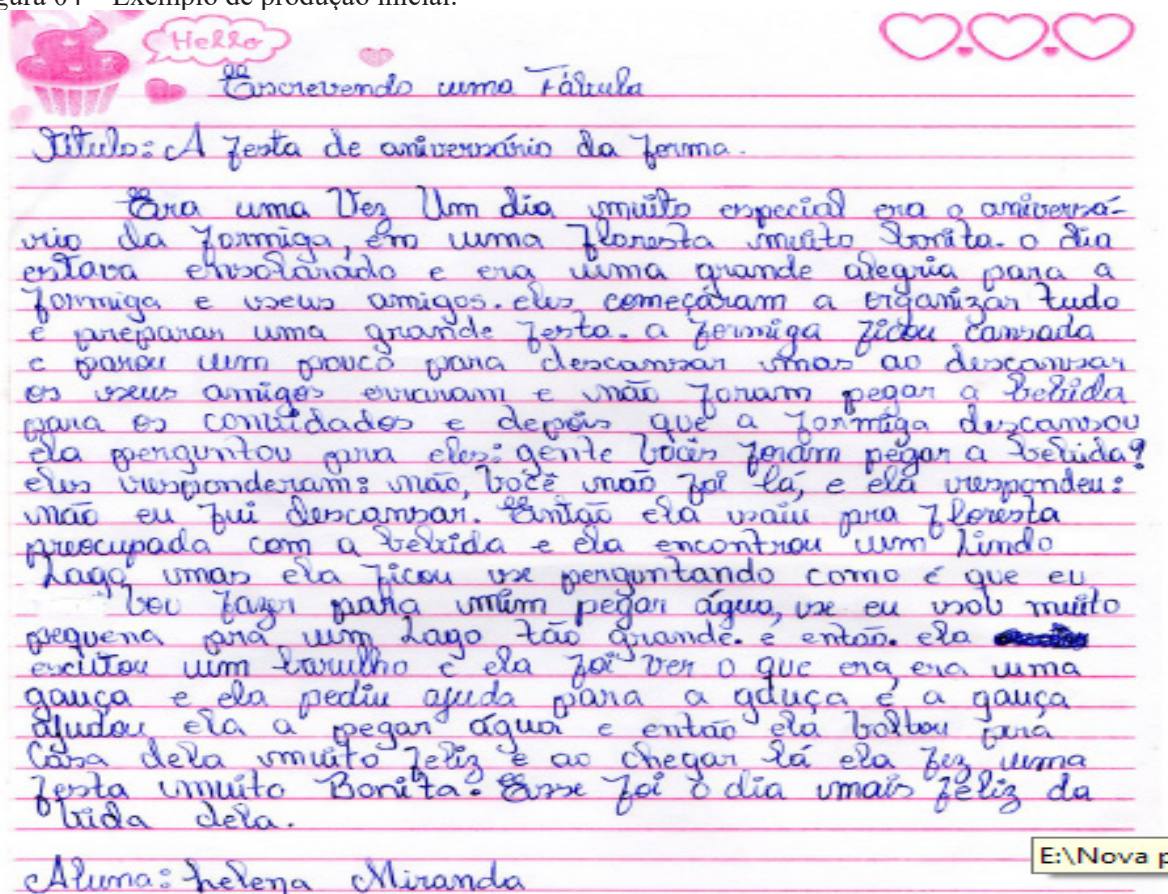 gura 04 – Exemplo de produção inicial.
Hello
Escrevendo uma Fábula
Título: A festa de aniversário da forma.
Era uma Vez Um dia muito especial era o aniversá-
rio da formiga, em uma floresta muito bonita. o dia
estava ensolarado e era uma grande alegria para a
formiga e seus amigos. eles começaram a organizar tudo
e preparar uma grande festa. a formiga ficou cansada
e parou um pouco para descansar mas ao descansar
os seus amigos erraram e não foram pegar a bebida
para os convidados e depois que a formiga descansou
ela perguntou para eles: gente vocês foram pegar a bebida?
eles responderam: não, você não foi lá, e ela respondeu:
não eu fui descansar. Então ela saiu pra floresta
preocupada com a bebida e ela encontrou um lindo
lago mas ela ficou se perguntando como é que eu
vou fazer para mim pegar água, se eu sou muito
pequena pra um lago tão grande. e então. ela
escutou um barulho e ela foi ver o que era, era uma
gauça e ela pediu ajuda para a gauça e a gauça
ajudou ela a pegar água e então ela voltou pra
Casa dela muito feliz e ao chegar lá ela fez uma
festa muito Bonita. Esse foi o dia mais feliz da
vida dela.
Aluna: helena Miranda
E:\Nova p